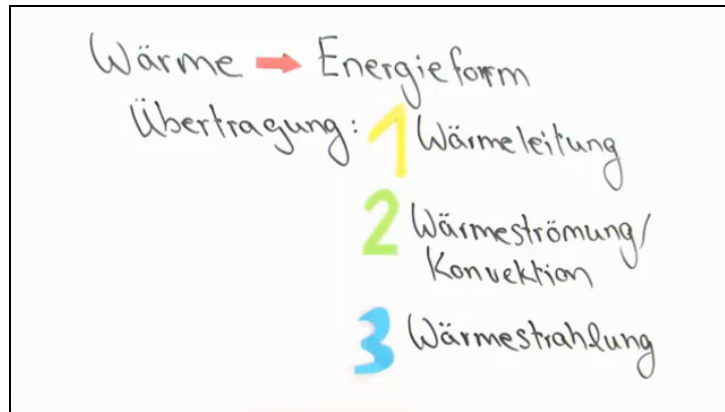 Wärme → Energieform
Übertragung: 1 Wärmeleitung
2 Wärmeströmung/
Konvektion
3 Wärmestrahlung